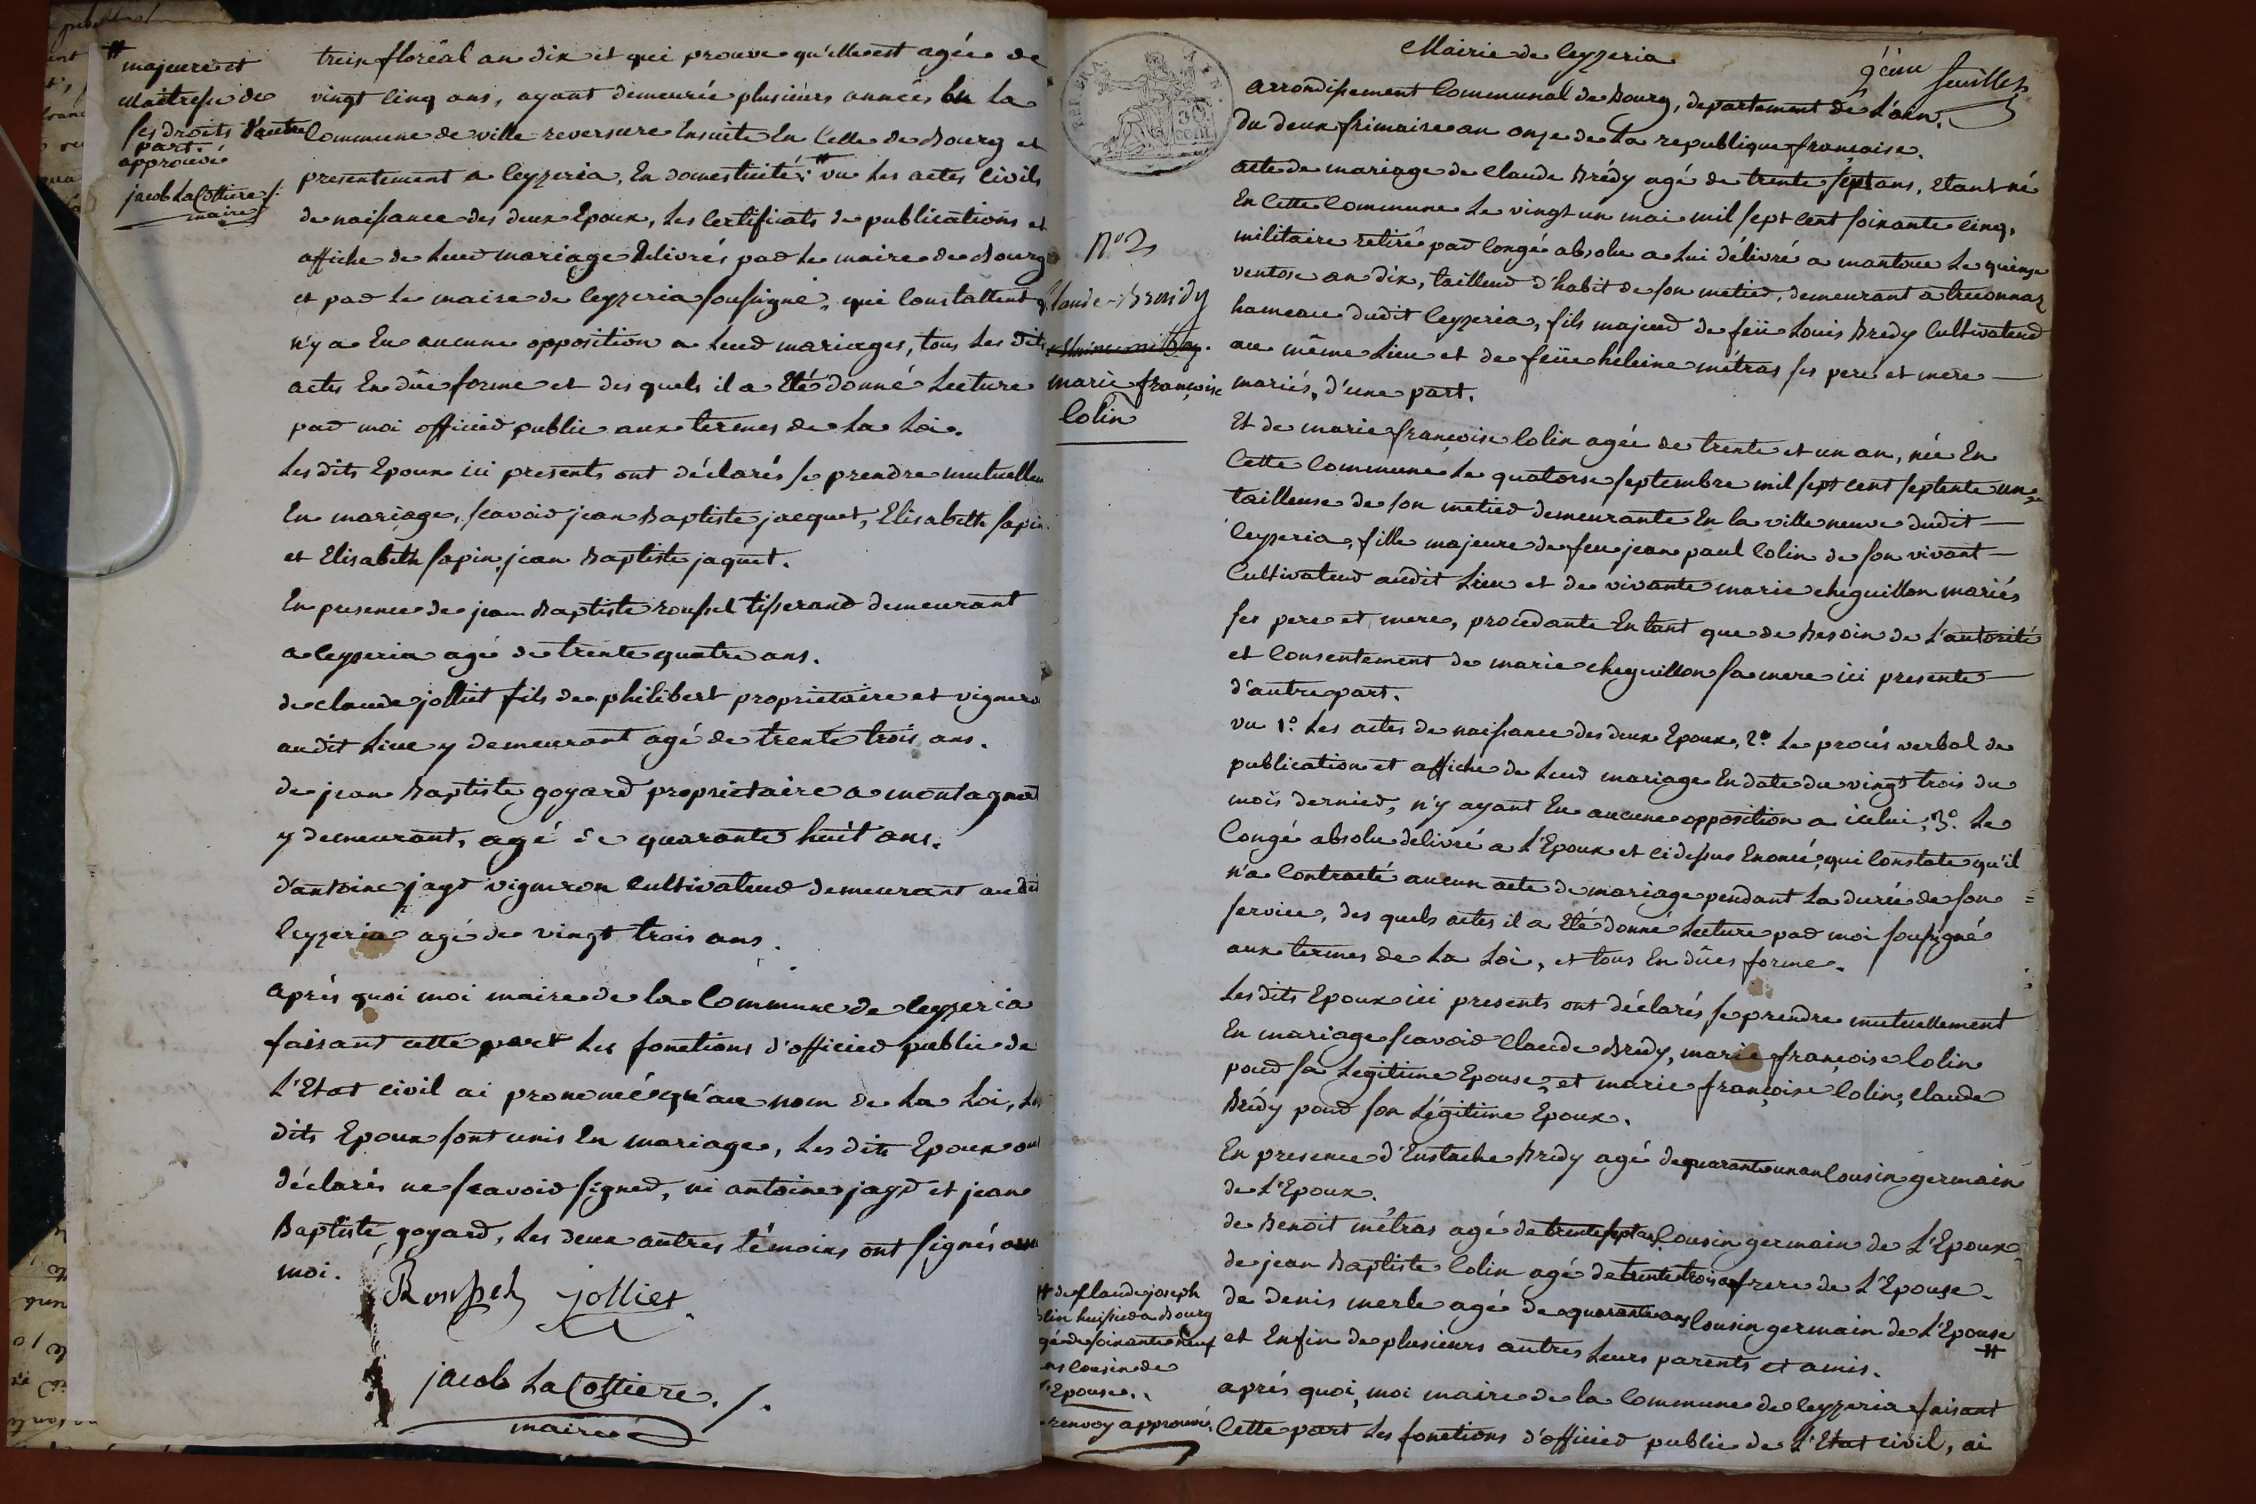 # majeure et
Maitresse de
ses droits d'autre
part.
approuvé
jacob LaCottiere
maire
treize floréal an dix et qui prouve qu'elle est agée de
vingt cinq ans, ayant demeurée plusieurs années en la
Commune de ville reversure Ensuite En Celle de Bourg et
presentement a Ceyzeria, En domesticité; # vu les actes Civils
de naissance des deux Epoux, les Certificats de publications et
affiche de leur mariage delivrés par le maire de Bourg
et par le maire de Ceyzeria soussigné, qui Constattent q
n'y a Eu aucune opposition a leur mariages, tous les dits
actes En dûe forme et des quels il a Eté donné Lecture
par moi officier public aux termes de la Loi.
Les dits Epoux ici presents ont déclarés se prendre mutuellem
En mariage, scavoir jean Baptiste jacquet, Elisabeth sapin
et Elisabeth sapin, jean Baptiste jaquet.
En presence de jean Baptiste roussel tisserand demeurant
a Ceyzeria agé de trente quatre ans.
de claude jolliet fils de philibert proprietaire et vignero
audit Lieu y demeurant agé de trente trois ans.
de jean Baptiste goyard proprietaire a montagnat
y demeurant, agé de quarante huit ans.
d'antoine jayr vigneron Cultivateur demeurant audit
Ceyzeria agé de vingt trois ans.
après quoi moi maire de la Commune de Ceyzeria
faisant cette part les fonctions d'officier public de
L'Etat civil ai prononcé qu'au nom de la Loi, les
dits Epoux sont unis En mariage, Les dits Epoux ont
déclarés ne scavoir signer, ni antoine jayr et jean
Baptiste goyard, Les deux autres témoins ont signés avec
moi.
Roussel jolliet
jacob LaCottiere
maire
Mairie de Ceyzeria
feuillet
arrondissement Communal de Bourg, departement de L'ain.
du deux frimaire an onze de la republique francoise.
acte de mariage de Claude Brédy agé de trente sept ans, Etant né
En Cette Commune le vingt un mai mil sept cent soixante cinq,
militaire retiré par Congé absolu a lui délivré a mantoue le quinze
ventose an dix, tailleur d'habit de son metier, demeurant a treconnaz
hameau dudit Ceyzeria, fils majeur de feü Louis Bredy Cultivateur
au même Lieu et de feüe heleine métras ses pere et mere
mariés, d'une part.
N° 2
Claude Breidy
marie françoise
Colin
Et de marie françoise Colin agée de trente et un an, née En
Cette Commune le quatorze septembre mil sept cent septente un
tailleuse de son metier demeurante En la ville neuve dudit
Ceyzeria, fille majeure de feu jean paul Colin de son vivant
Cultivateur audit Lieu et de vivante marie cheguillon mariés
ses pere et mere, procedante En tant que de Besoin de l'autorité
et Consentement de marie cheguillon sa mere ici presente
d'autre part.
vu 1°. Les actes de naissance des deux Epoux, 2° Le procès verbal de
publication et affiche de leur mariage En date du vingt trois du
mois dernier, n'y ayant Eu aucune opposition a icelui, 3°. Le
Congé absolu délivré a l'Epoux et ci dessus Enoncé, qui Constate qu'il
n'a Contracté aucun acte de mariage pendant la durée de son
service, des quels actes il a Eté donné Lecture par moi soussigné
aux termes de la Loi, et tous En dües forme.
Les dits Epoux ici presents ont déclarés se prendre mutuellement
En mariage scavoir Claude Bredy, marie françoise Colin
pour sa Legitime Epouse, et marie françoise Colin, Claude
Brédy pour son Légitime Epoux.
En presence d'Eustache Bredy agé de quarante un an Cousin germain
de L'Epoux.
de Benoit métras agé de trente sept ans Cousin germain de L'Epoux
de jean Baptiste Colin agé de trente trois frere de L'Epouse.
de denis merle agé de quarante ans Cousin germain de L'Epouse #
et Enfin de plusieurs autres leurs parents et amis.
# de Claude joseph
Colin huissier a Bourg
agé de soixante neuf
ans Cousin de
L'Epouse.
renvoy approuvé.
après quoi, moi maire de la Commune de Ceyzeria faisant
Cette part les fonctions d'officier public de L'Etat civil, ai